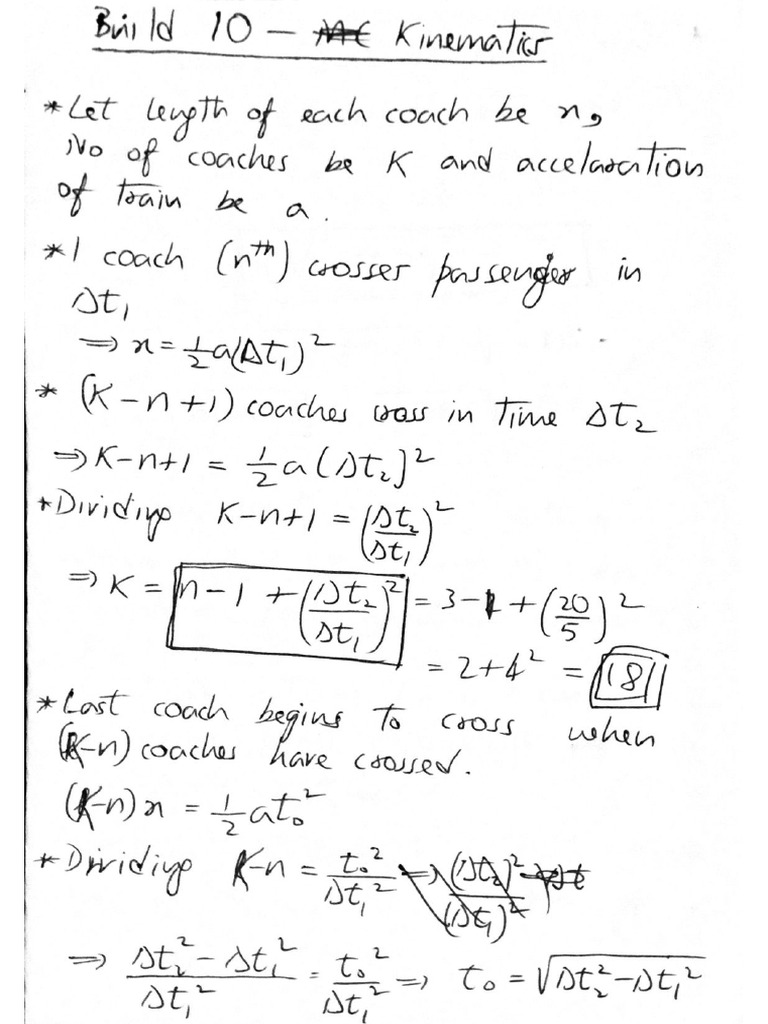 Build 10 — Kinematics
* Let length of each coach be x,
No of coaches be K and accelaration
of train be a.
* 1 coach (nth) crosses passenger in
Δt₁
⇒ x = ½a(Δt₁)²
* (K-n+1) coaches cross in time Δt₂
⇒ K-n+1 = ½a(Δt₂)²
* Dividing K-n+1 = (Δt₂/Δt₁)²
⇒ K = n-1 + (Δt₂/Δt₁)² = 3-1+(20/5)²
= 2+4² = 18
* Last coach begins to cross when
(K-n) coaches have crossed.
(K-n)x = ½at₀²
* Dividing K-n = t₀²/Δt₁² ⇒ (Δt₂)²/(Δt₁)²
⇒ Δt₂²-Δt₁²/Δt₁² = t₀²/Δt₁² ⇒ t₀ = √Δt₂²-Δt₁²